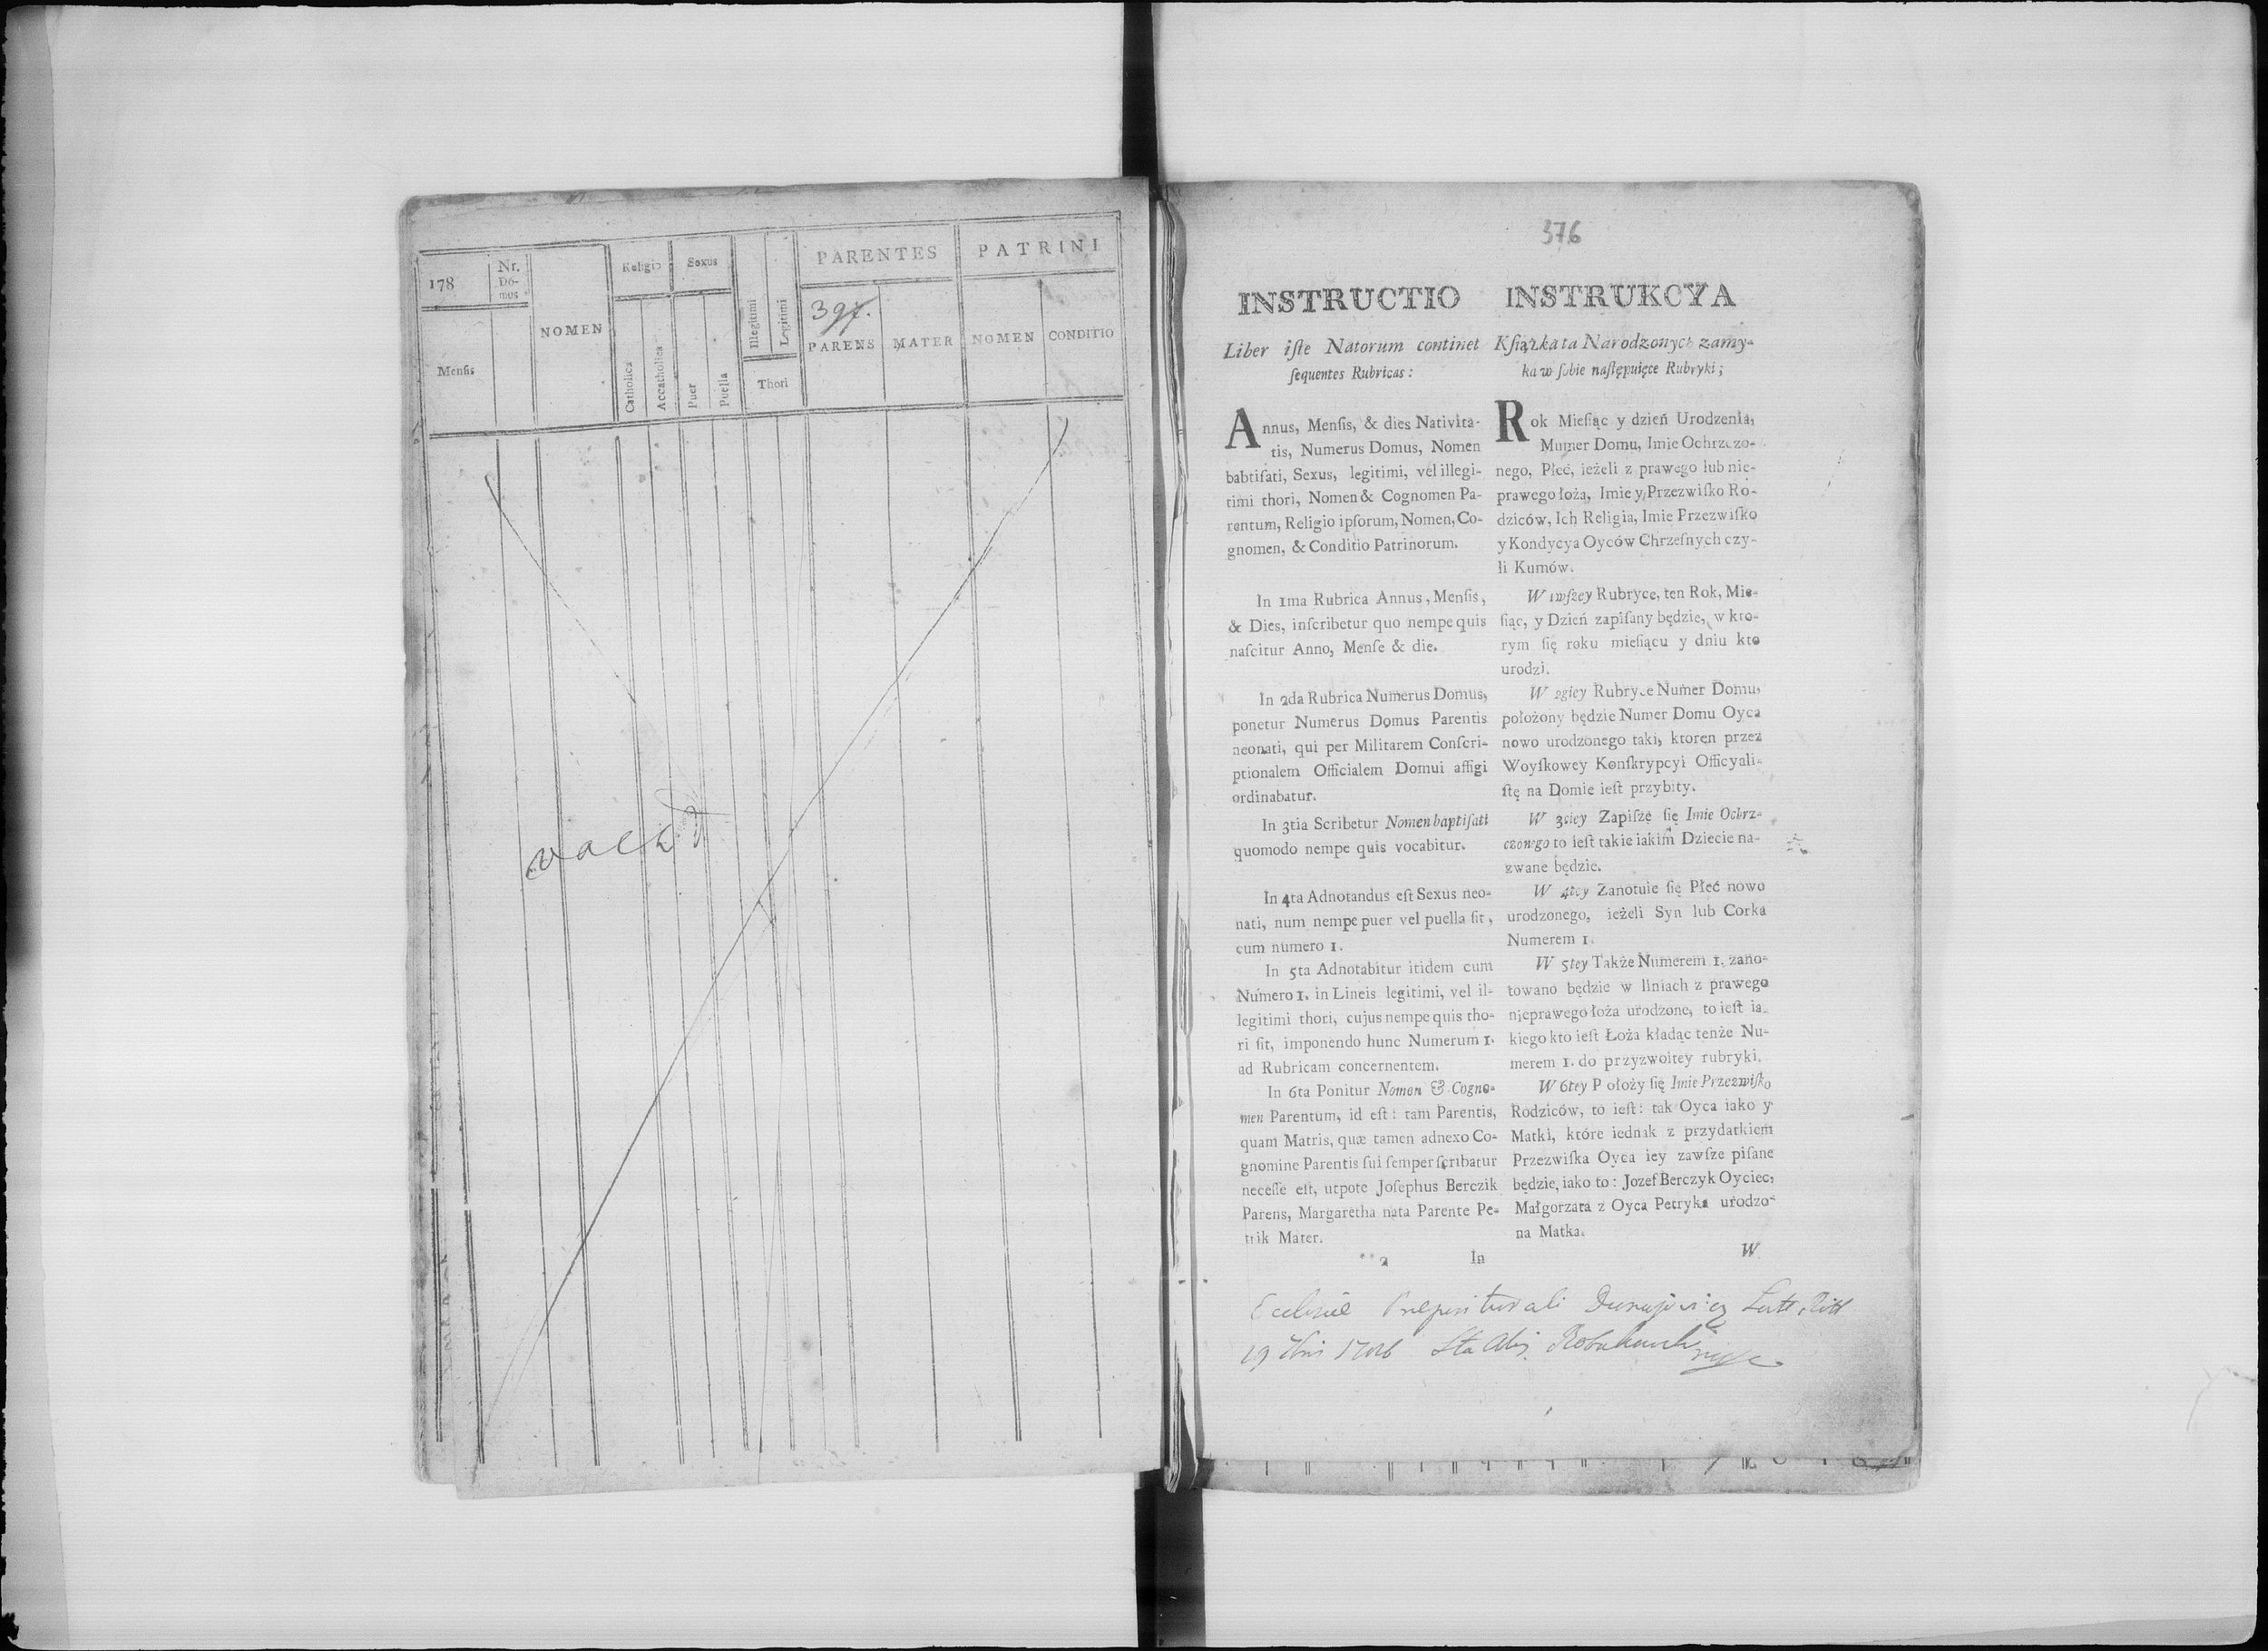 178
Nr. Do-mus
NOMEN
Religio
Sexus
PARENTES
PATRINI
Mensis
Catholica
Accatholica
Puer
Puella
Illegitimi
Legitimi
Thori
PARENS
MATER
NOMEN
CONDITIO
376
INSTRUCTIO
Liber iſte Natorum continet
ſequentes Rubricas:
Annus, Menſis, & dies Nativita-
tis, Numerus Domus, Nomen
babtiſati, Sexus, legitimi, vel illegi-
timi thori, Nomen & Cognomen Pa-
rentum, Religio ipſorum, Nomen, Co-
gnomen, & Conditio Patrinorum.
In 1ma Rubrica Annus, Menſis,
& Dies, inſcribetur quo nempe quis
naſcitur Anno, Menſe & die.
In 2da Rubrica Numerus Domus,
ponetur Numerus Domus Parentis
neonati, qui per Militarem Conſcri-
ptionalem Officialem Domui affigi
ordinabatur.
In 3tia Scribetur Nomen baptiſati
quomodo nempe quis vocabitur.
In 4ta Adnotandus eſt Sexus neo-
nati, num nempe puer vel puella ſit,
cum numero 1.
In 5ta Adnotabitur itidem cum
Número 1. in Lineis legitimi, vel il-
legitimi thori, cujus nempe quis tho-
ri ſit, imponendo hunc Numerum 1.
ad Rubricam concernentem.
In 6ta Ponitur Nomen & Cogno-
men Parentum, id eſt: tam Parentis,
quam Matris, quæ tamen adnexo Co-
gnomine Parentis ſui ſemper ſcribatur
neceſſe eſt, utpote Joſephus Berczik
Parens, Margaretha nata Parente Pe-
trik Mater.
**2 In
INSTRUKCYA
Kſiążka ta Narodzonych zamy-
ka w ſobie naſtępuięce Rubryki;
Rok Mieſiąc y dzień Urodzenia,
Mumer Domu, Imie Ochrzczo-
nego, Płeć, ieżeli z prawego lub nie-
prawego łoża, Imie y Przezwiſko Ro-
dziców, Ich Religia, Imie Przezwiſko
y Kondycya Oyców Chrzeſnych czy-
li Kumów.
W 1wſzey Rubryce, ten Rok, Mie-
ſiąc, y Dzień zapiſany będzie, w kto-
rym ſię roku mieſiącu y dniu kto
urodzi.
W 2giey Rubryce Numer Domu,
położony będzie Numer Domu Oyca
nowo urodzonego taki, ktoren przez
Woyſkowey Konſkrypcyi Officyali-
ſtę na Domie ieſt przybity.
W 3ciey Zapiſze ſię Imie Ochrz-
czonego to ieſt takie iakim Dziecie na-
zwane będzie.
W 4tey Zanotuie ſię Płeć nowo
urodzonego, ieżeli Syn lub Corka
Numerem 1.
W 5tey Także Numerem 1. zano-
towano będzie w liniach z prawego
nieprawego łoża urodzone, to ieſt ia-
kiego kto ieſt Łoża kładąc tenże Nu-
merem 1. do przyzwoitey rubryki.
W 6tey P ołoży ſię Imie Przezwiſko
Rodziców, to ieſt: tak Oyca iako y
Matki, które iednak z przydatkiem
Przezwiſka Oyca iey zawſze piſane
będzie, iako to: Jozef Berczyk Oyciec,
Małgorzata z Oyca Petryka urodzo-
na Matka.
W